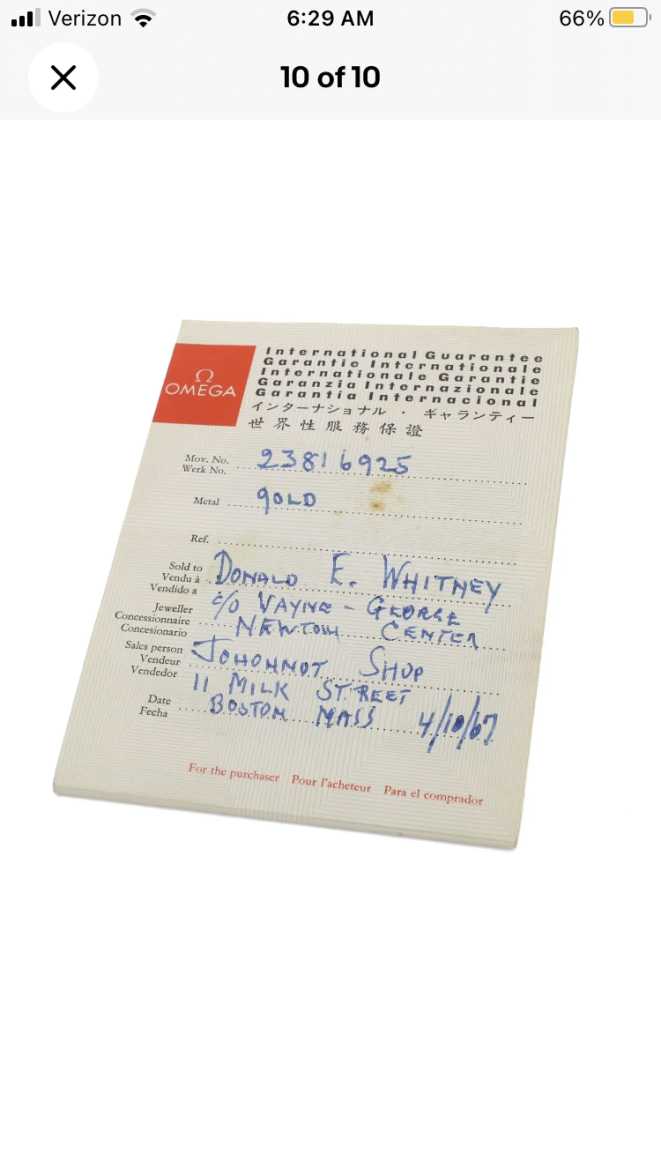 Verizon 6:29 AM 66%
10 of 10
Ω
OMEGA
International Guarantee
Garantie Internationale
Internationale Garantie
Garanzia Internazionale
Garantia Internacional
インターナショナル ・ ギャランティー
世界性服務保證
Mov. No. 23816925
Werk No.
Metal gOLD
Ref.
Sold to DONALD E. WHITNEY
Vendu à
Vendido a
Jeweller c/o VAYNE - GEORGE
Concessionnaire NEWTON CENTER
Concesionario
Sales person JOHONNOT SHOP
Vendeur
Vendedor 11 MILK STREET
Date BOSTON MASS 4/10/67
Fecha
For the purchaser Pour l'acheteur Para el comprador